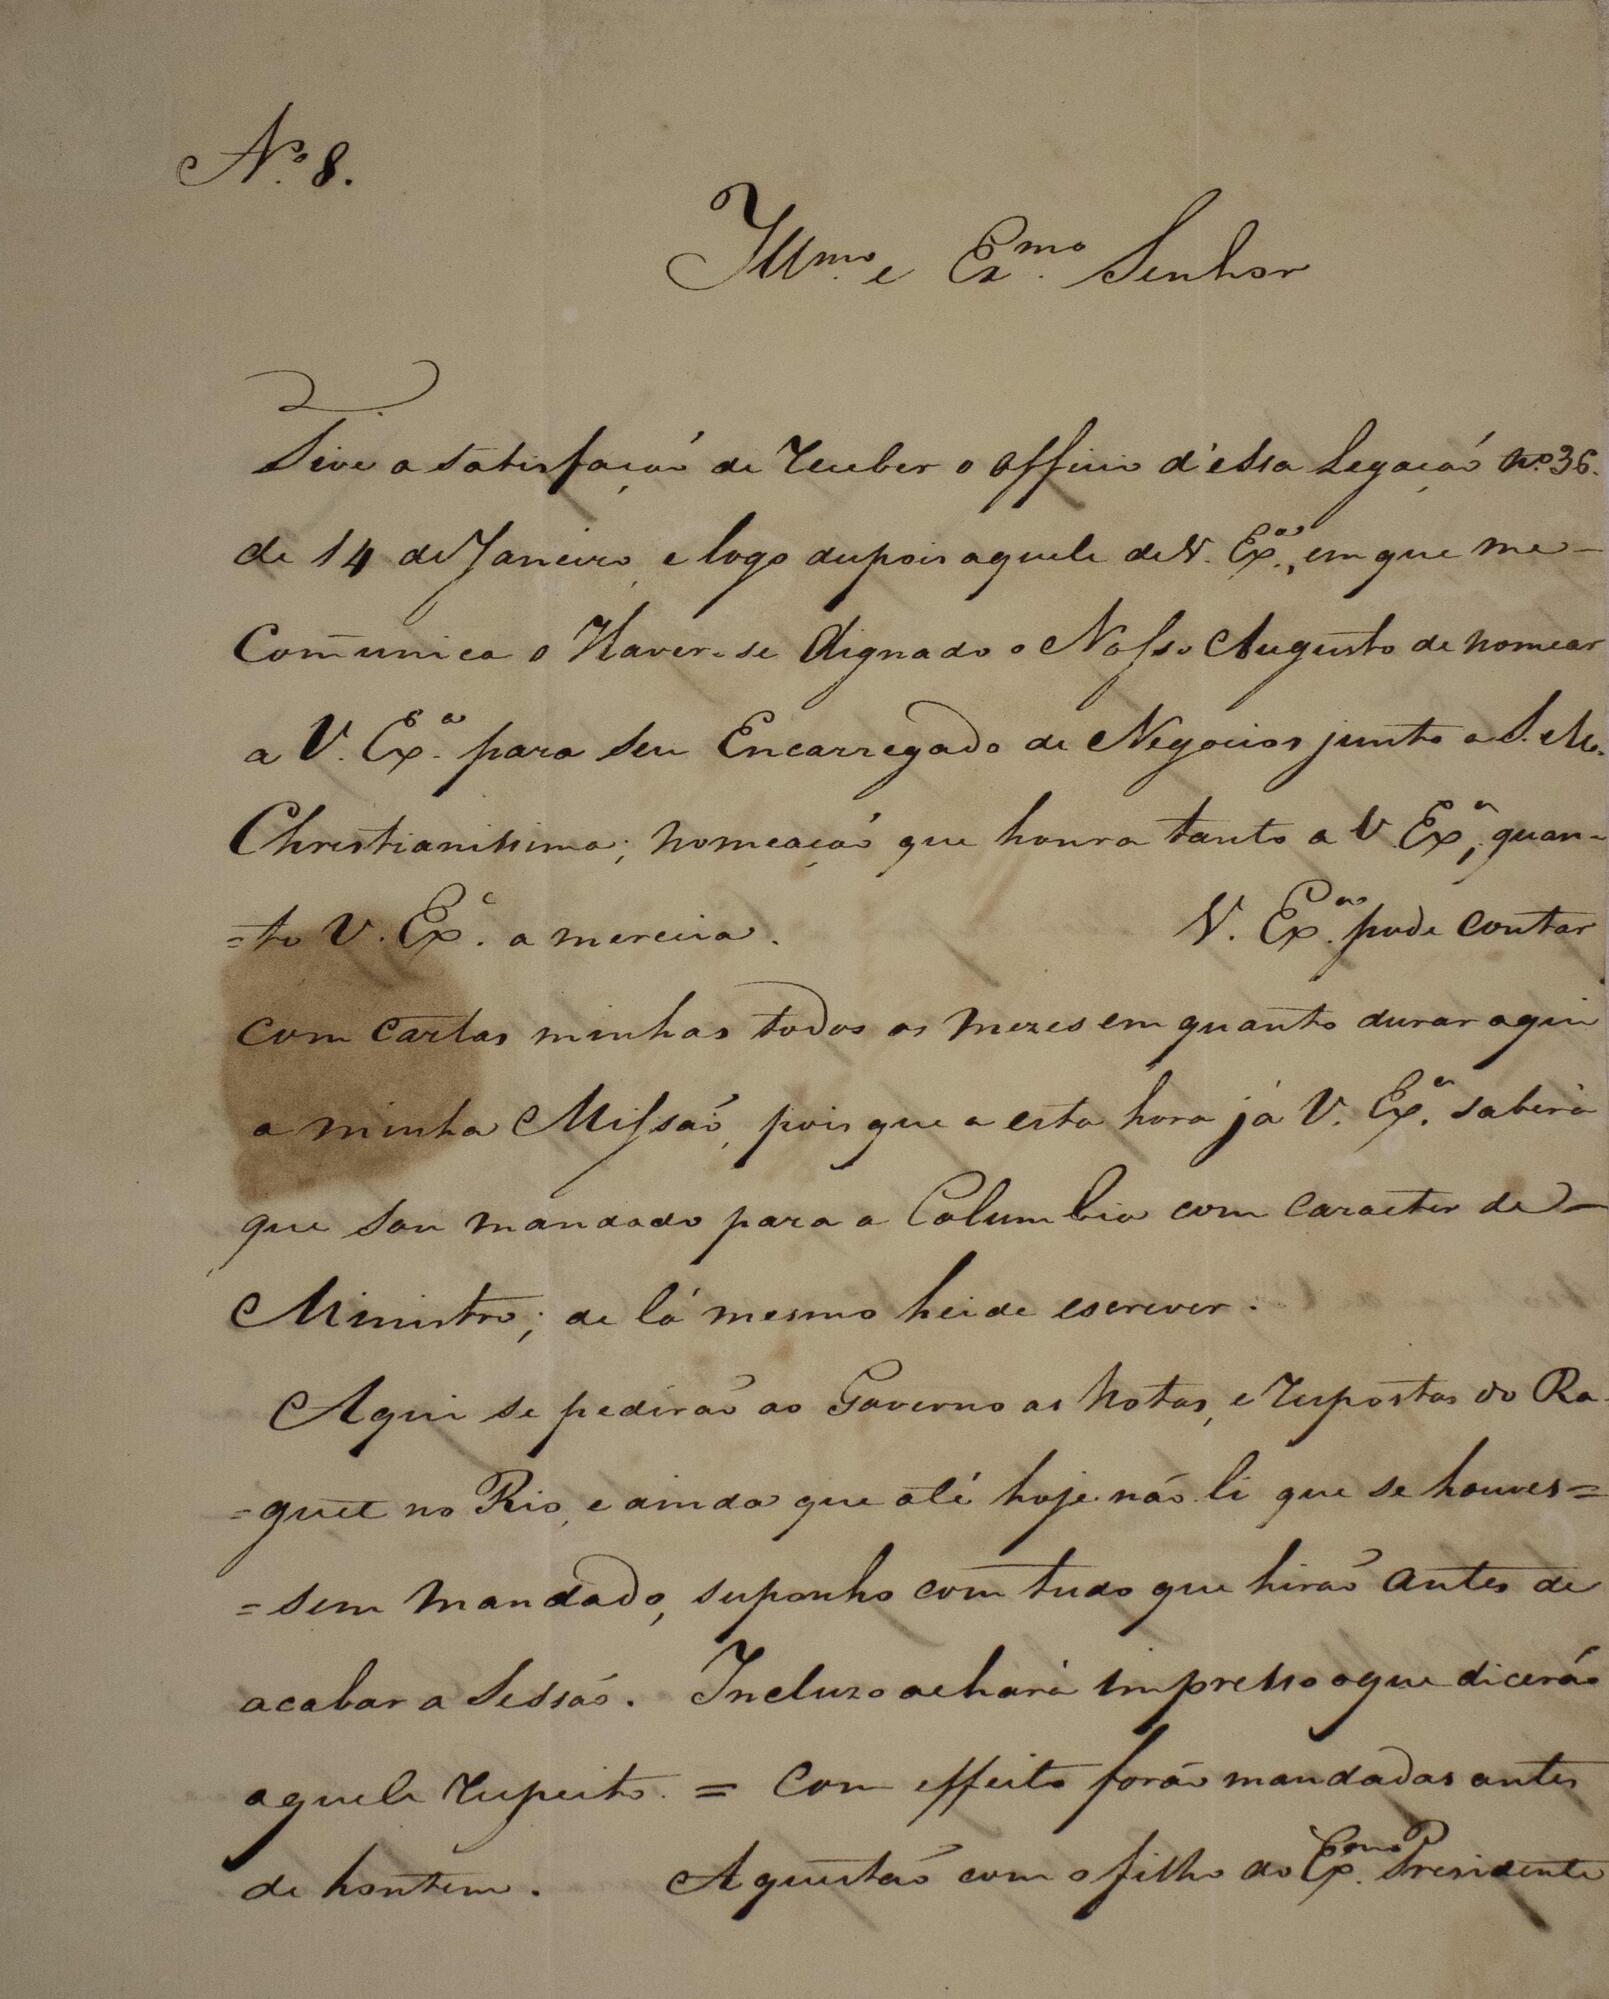 Nº 8.
Illmo. e Exmo. Senhor
Tive a satisfação de receber o officio d'essa Legação nº 36.
de 14 de Janeiro, e logo depois aquele de V. Exa., em que me
Com̃unica o Haver-se Dignado o Nosso Augusto de nomear
a V. Exa. para seu Encarregado de Negocios junto a S. M.
Christianissima; nomeação que honra tanto a V. Exa, quan-
=to V. Exa. a merecia. V. Exa. pode contar
com cartas minhas todos os mezes em quanto durar aqui
a minha Missão, pois que a esta hora já V. Exa. saberá
que sou mandado para a Columbia com caracter de
Ministro; de lá mesmo heide escrever.
Aqui se pedirão ao Governo as Notas, e respostas do Ra-
=guet no Rio, e ainda que até hoje não li que se houves=
=sem mandado, suponho com tudo que hirão antes de
acabar a Sessão. Incluzo achará impresso o que dicerão
aquele respeito. = Com effeito forão mandadas antes
de hontem. A questão com o filho do Exmo. Presidente